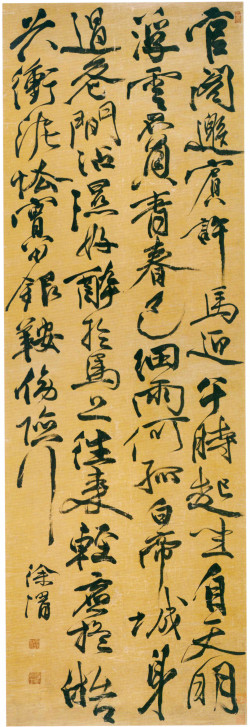 官閣邀賓許馬迎午時起坐自天明
浮雲不負青春色細雨何孤白帝城身
過花間沾濕好醉於馬上往來輕虛疑皓
首衝泥怯實少銀鞍傍險行
徐渭